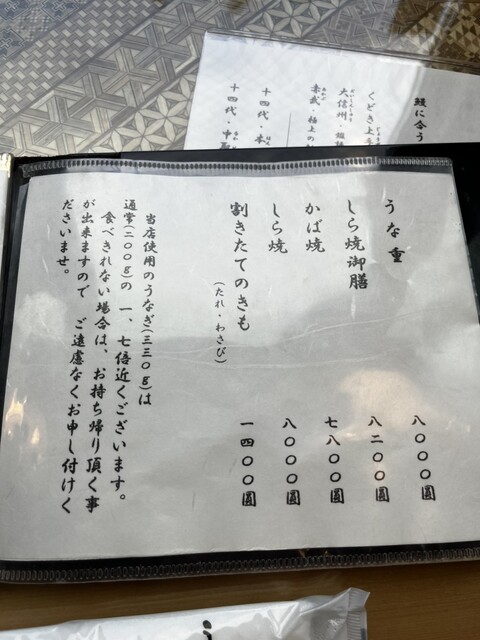 鰻に合う
くどき上
大信州・
赤武・極上の
十四代・本
十四代・中
うな重 八〇〇〇圓
しら焼御膳 八二〇〇圓
かば焼 七八〇〇圓
しら焼 八〇〇〇圓
割きたてのきも 一四〇〇圓
(たれ・わさび)
当店使用のうなぎ(三三〇g)は
通常(二〇〇g)の 一、七倍近くございます。
食べきれない場合は、お持ち帰り頂く事
が出来ますので ご遠慮なくお申し付けく
ださいませ。